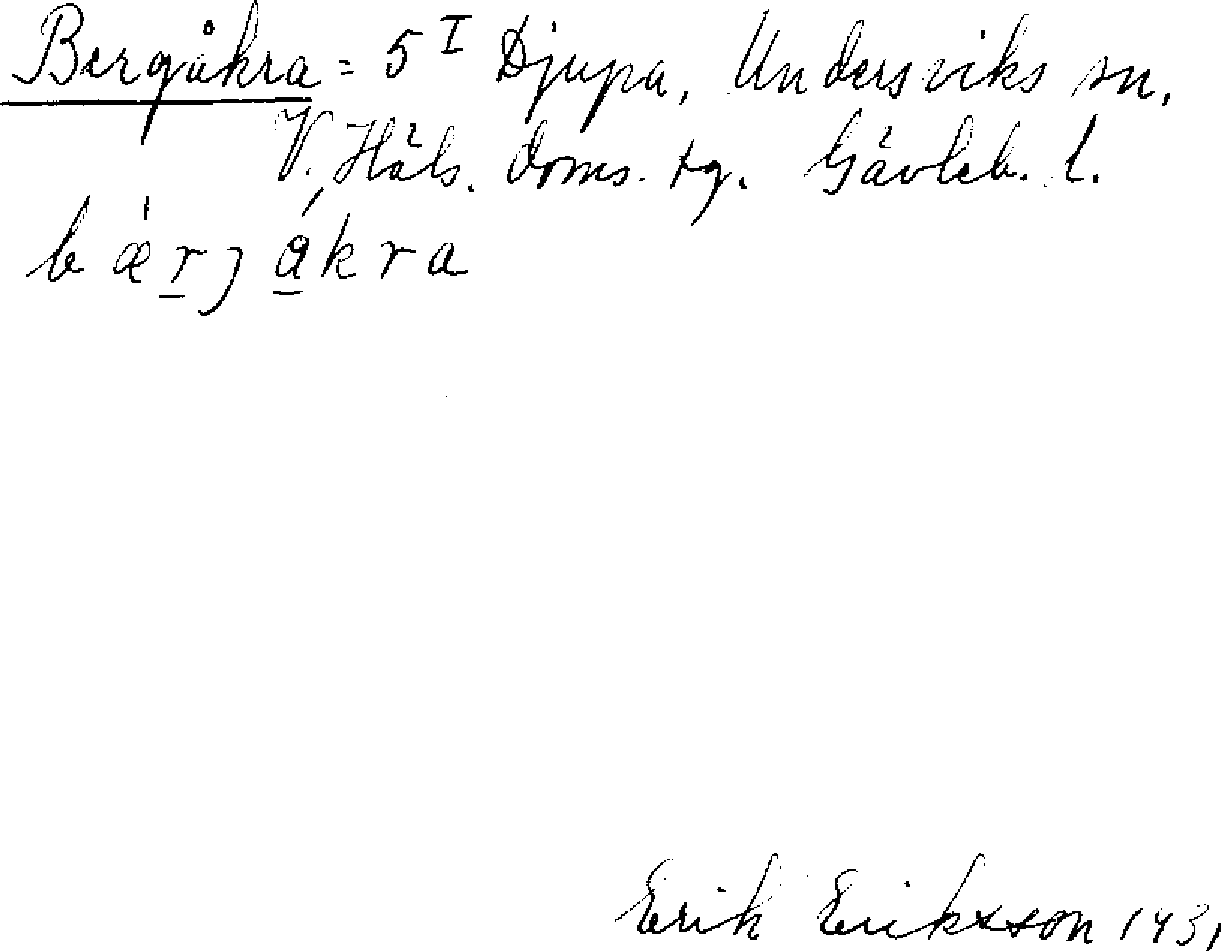 Bergåkra = 5ᴵ Djupa, Undersviks sn.
V. Häls. doms. tg. Gävleb. l.
bæ̀rjåkra
Erik Eriksson 1931